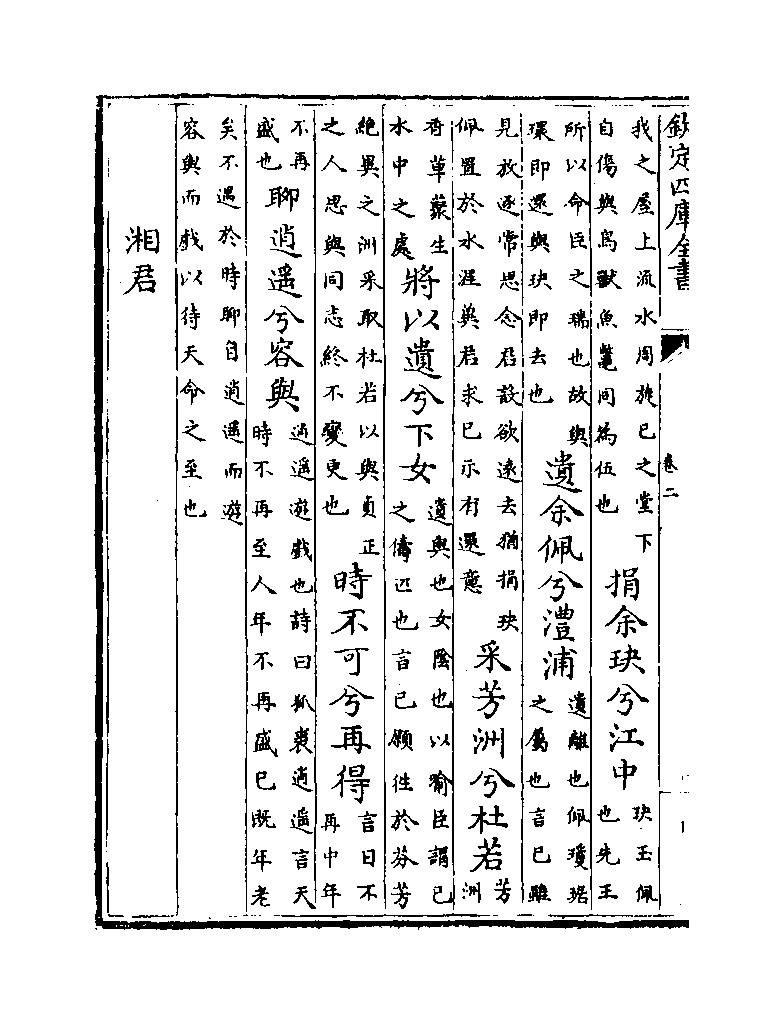 欽定四庫全書
卷二
我之屋上流水周旋己之堂下
自傷與鳥獸魚鼈同為伍也
捐余玦兮江中
玦玉佩
也先王
所以命臣之瑞也故與
環即還與玦即去也
遺余佩兮澧浦
遺離也佩瓊琚
之屬也言已雖
見放逐常思念君設欲遠去猶捐玦
佩置於水涯冀君求已示有還意
采芳洲兮杜若
芳
洲
香草藂生
水中之處
將以遺兮下女
遺與也女陰也以喻臣謂已
之儔匹也言已願徃於芬芳
絶異之洲采取杜若以與貞正
之人思與同志終不變更也
時不可兮再得
言日不
再中年
不再
盛也
聊逍遥兮容與
逍遥遊戲也詩曰狐裘逍遥言天
時不再至人年不再盛已既年老
矣不遇於時聊自逍遥而遊
容與而戲以待天命之至也
湘君